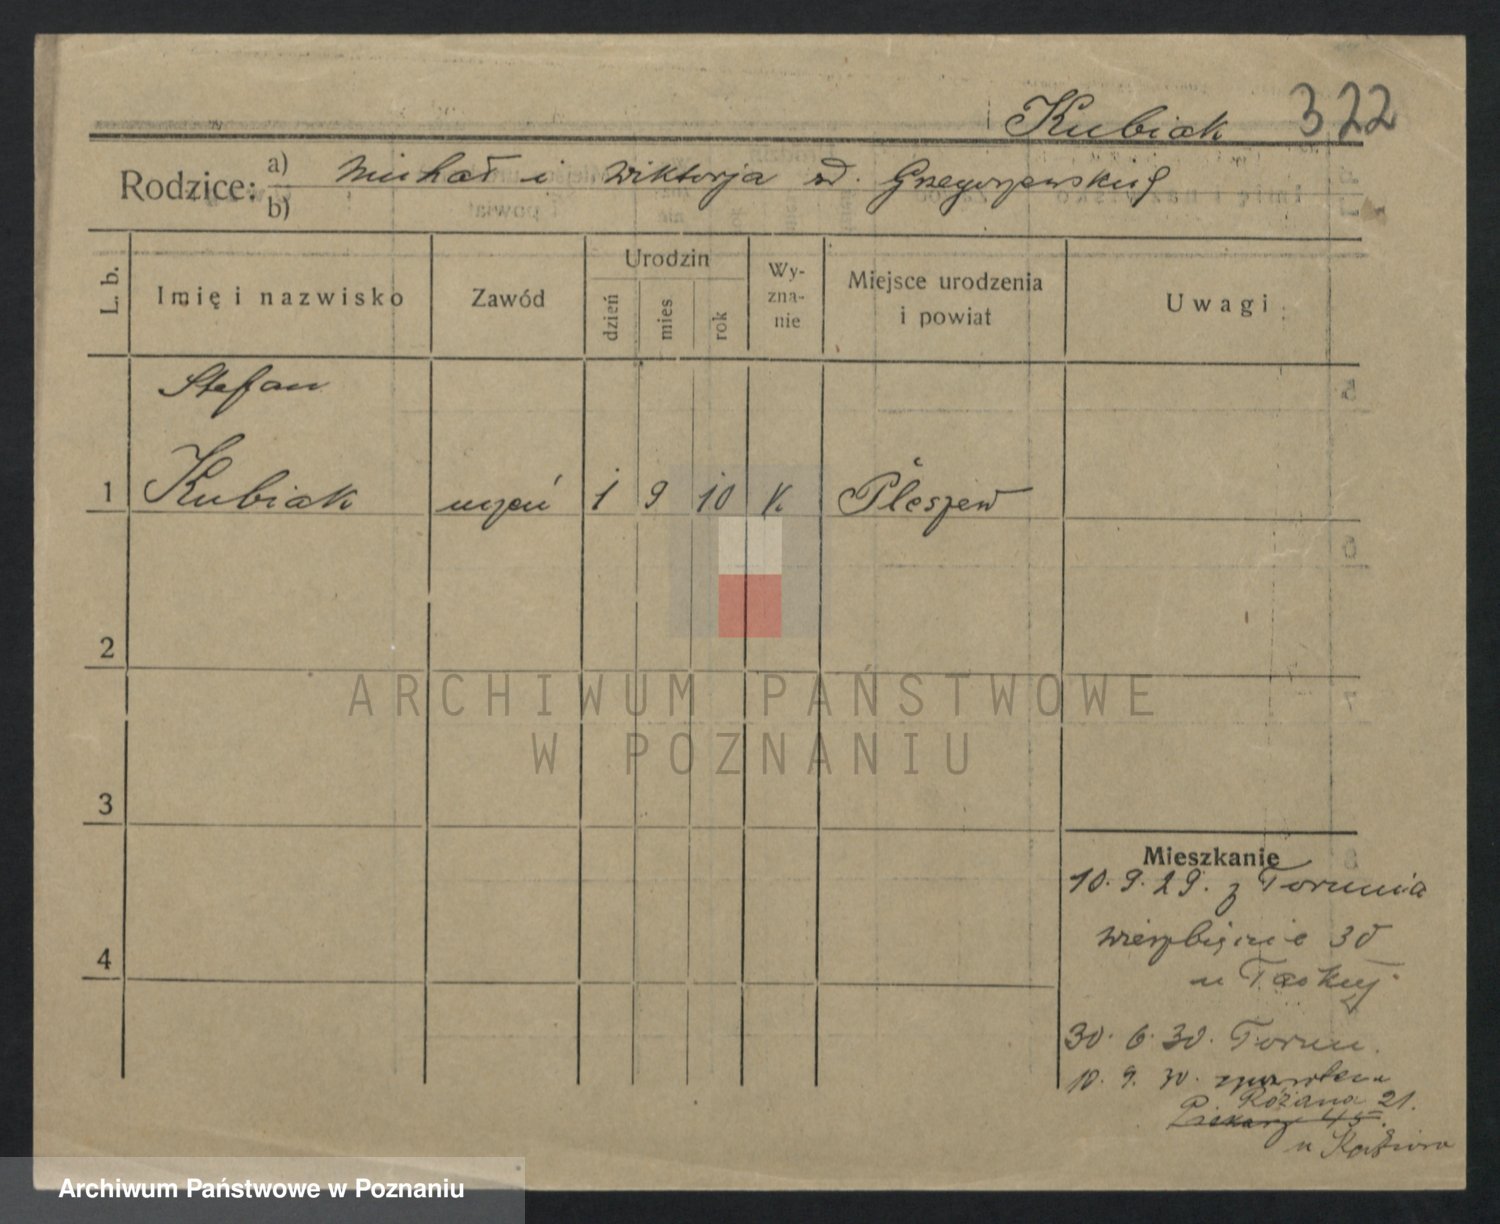 Kubiak 322
Rodzice: a) Michał i Wiktorja
b)
L. b. Imię i nazwisko Zawód Urodzin dzień mies rok Wy-zna-nie Miejsce urodzenia i powiat Uwagi
Stefan
1 Kubiak uczeń 1 9 10 K. Pleszew
2
ARCHIWUM PAŃSTWOWE
W POZNANIU
3
Mieszkanie
10. 9. 29. z Torunia
30
u
4
30. 6. 30. Toruń.
10. 9. 30.
Różana 21.
Piekary 45.
u
Archiwum Państwowe w Poznaniu